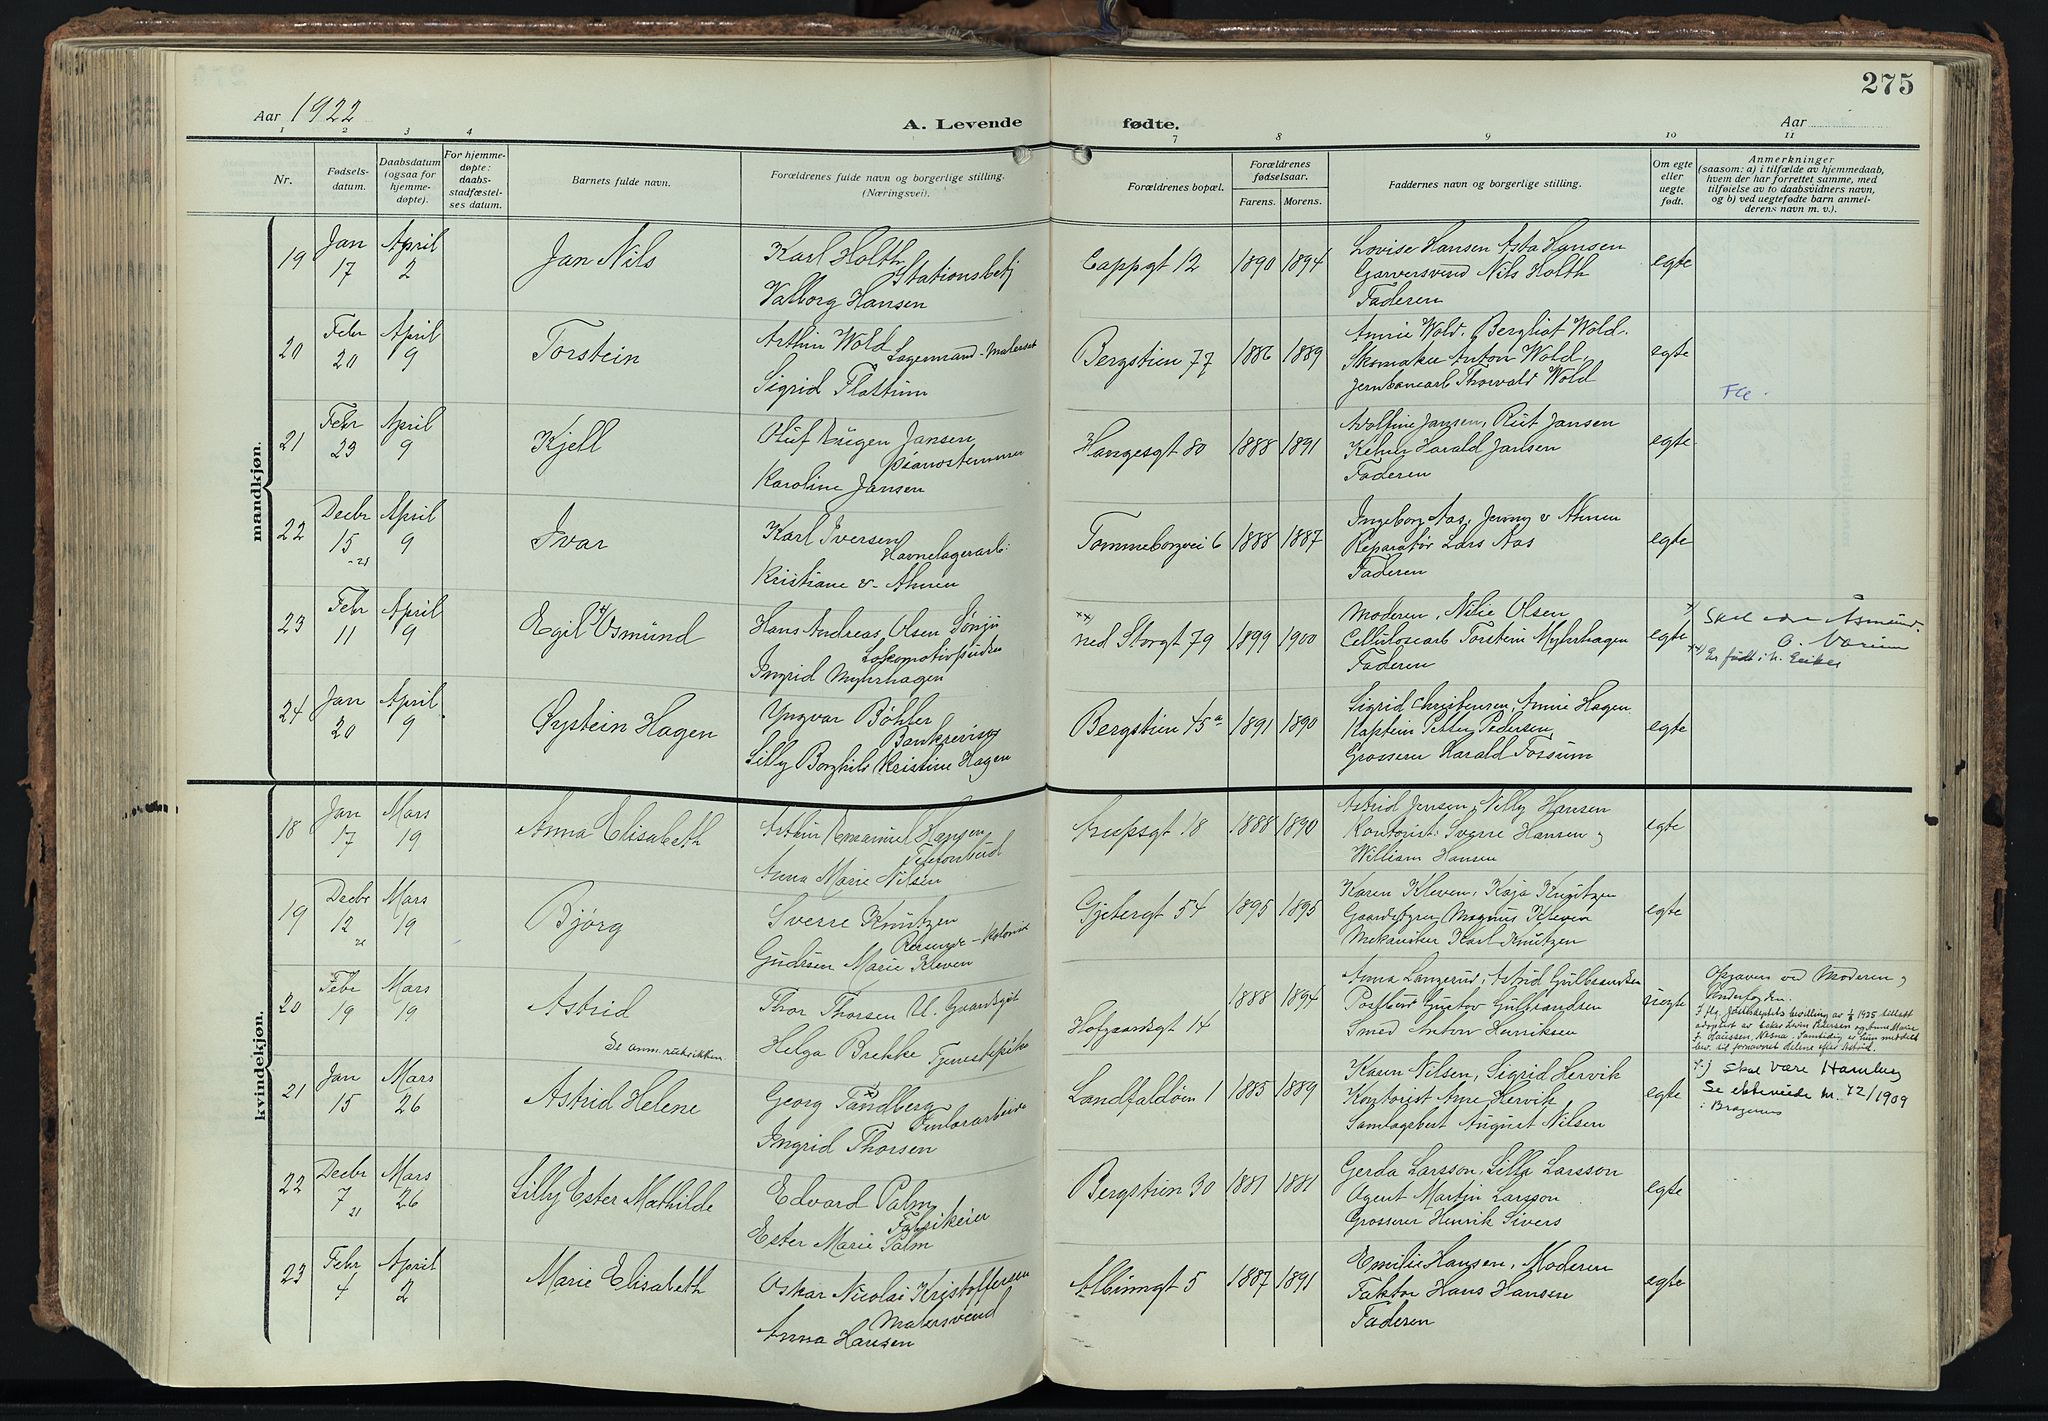 275
Aar 1922
A. Levende fødte.
Aar
1 2 3 4 7 8 9 10 11
Nr.
Fødsels-
datum.
Daabsdatum
(ogsaa for
hjemme-
døpte).
For hjemme-
døpte:
daabs-
stadfæstel-
ses datum.
Barnets fulde navn.
Forældrenes fulde navn og borgerlige stilling.
(Næringsvei).
Forældrenes bopæl.
Forældrenes
fødselsaar.
Farens. Morens.
Faddernes navn og borgerlige stilling.
Om egte
eller
uegte
født.
Anmerkninger
(saasom: a) i tilfælde av hjemmedaab,
hvem der har forrettet samme, med
tilføielse av to daabsvidners navn,
og b) ved uegtefødte barn anmel-
derens navn m. v.).
mandkjøn.
19
Jan
17
April
2
Jan Nils
Karl Holth
Stationsbetj
Valborg Hansen
Cappgt 12
1890 1894
Lovise Hansen Asta Hansen
Garversvend Nils Holth
Faderen
egte
20
Febr
20
April
9
Torstein
Arthur Wold
Lagermand
Sigrid Flatrum
Bergstien 77
1886 1889
Annie Wold, Bergliot Wold.
Skomaker Anton Wold,
Jernbanearb Thorvald Wold
egte
21
Febr
23
April
9
Kjell
Oluf Eugen Jansen
Pianostemmer
Karoline Jansen
Haugesgt 80
1888 1891
Adolfine Jansen, Rut Jansen
Kelner Harald Jansen
Faderen
egte
22
Decbr
15
-21
April
9
Ivar
Karl Iversen
Havnelagerarb:
Kristiane v. Ahnen
Tommeborgvei 6
1888 1887
Ingeborg Aas, Jenny v Ahnen
Reparatør Lars Aas
Faderen
egte
23
Febr
11
April
9
Egil Osmund
Hans Andreas Olsen
Lokomotivpudser
Ingrid Myhrhagen
xx)
ned Storgt 79
1899 1900
Moderen, Nilie Olsen
Cellulosearb Torstein Myhrhagen
Faderen
egte
24
Jan
20
April
9
Øystein Hagen
Yngvar Bøhler
Bankrevisor
Lilly Borghild Kristine Hagen
Bergstien 45a
1891 1890
Sigrid Christensen, Annie Hagen
Kaptein Petter Pedersen,
Grosserer Harald Fossum
egte
kvindekjøn.
18
Jan
17
Mars
19
Anna Elisabeth
Arthur Emanuel Hansen
Anna Marie Nilsen
Krupsgt 18
1888 1890
Astrid Jensen, Nilly Hansen
Kontorist: Sverre Hansen
William Hansen
egte
19
Decbr
12
21
Mars
19
Bjørg
Sverre Knutzen
Gudrun Marie Kleven
Gjetergt 54
1895 1895
Karen Kleven, Kaja Knutzen
Gaardstyrer Magnus Kleven
Mekaniker Karl Knutzen
egte
20
Febr
19
Mars
19
Astrid
Se anm. rubrikken.
Thor Thorsen U. Gaardsgut
Helga Brekke Tjenestepike
Hofgaardsgt 14
1888 1894
Anna Langerud, Astrid Gulbrandsen
Postbud Gustav Gulbrandsen
Smed Anton Henriksen
uegte
Opgaven ved Moderen
21
Jan
15
Mars
26
Astrid Helene
Georg Tandberg
Ingrid Thorsen
Landfaldøien 1
1885 1889
Karen Nilsen, Sigrid Hervik
Kontorist Arne Hervik
August Nilsen
egte
x) Skal være Hamborg
Se ekteviede nr. 72/1909
i Bragernes
22
Decbr
7
21
Mars
26
Lilly Ester Mathilde
Edvard Palm
Fabrikeier
Ester Marie Palm
Bergstien 30
1881 1881
Gerda Larsson, Silla Larsson
Agent Martin Larsson
Grosserer Henrik Sivers
egte
23
Febr
4
April
2
Marie Elisabeth
Oskar Nicolai Kristoffersen
Malersvend
Anna Hansen
Albumgt 5
1887 1891
Emilie Hansen, Moderen
Faktor Hans Hansen
Faderen
egte